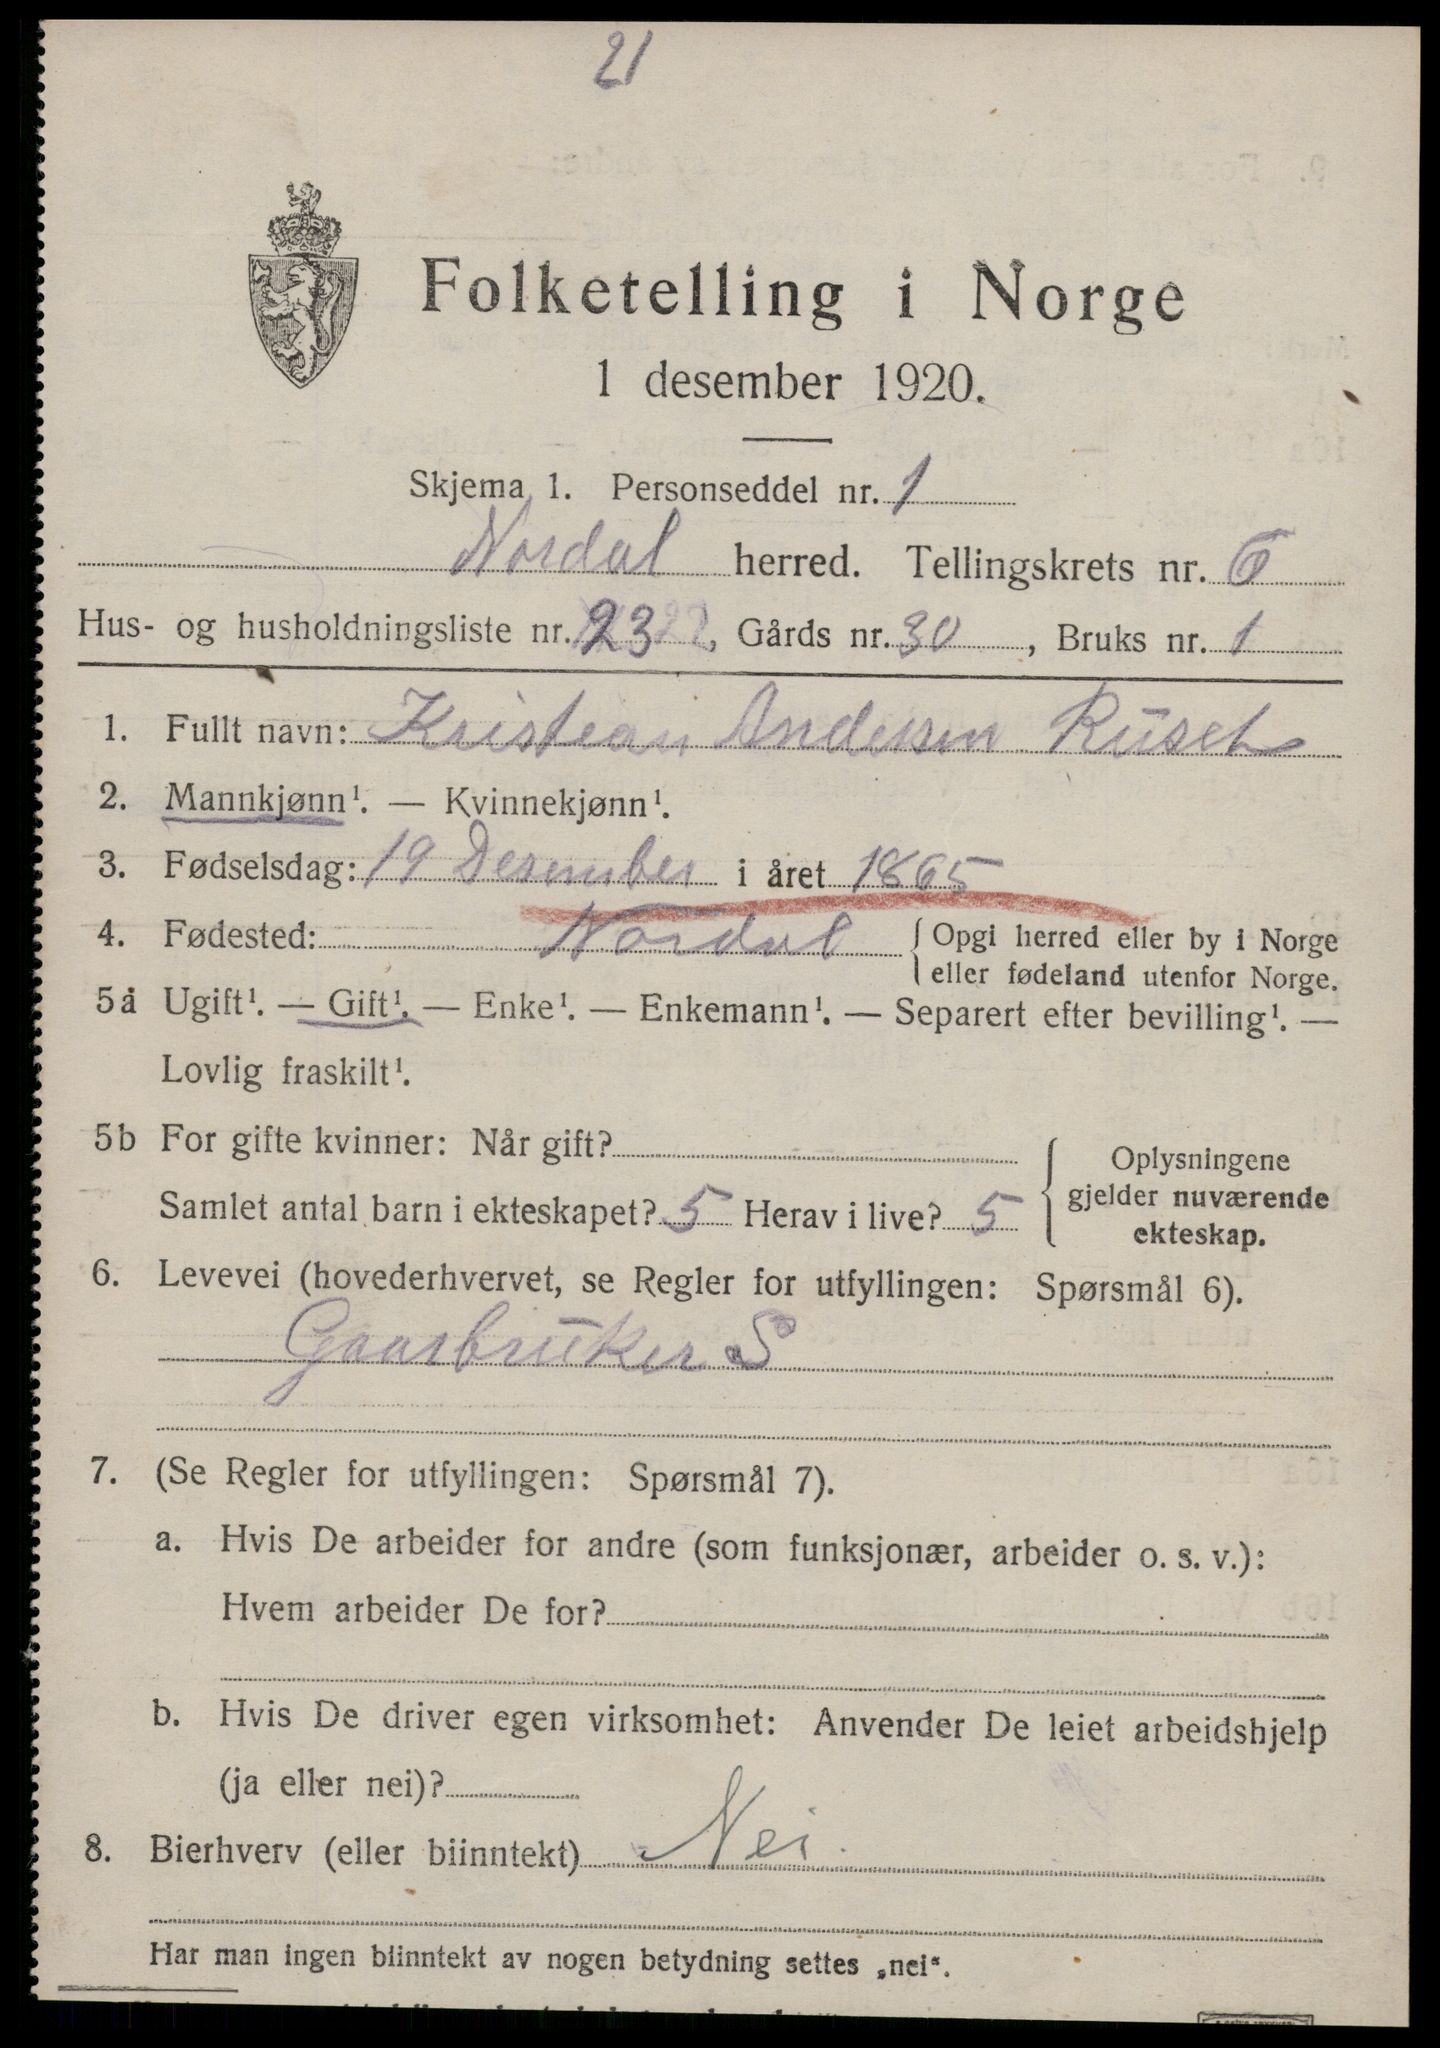 21
Folketelling i Norge
1 desember 1920.
Skjema 1. Personseddel nr. 1
Nordal herred. Tellingskrets nr. 6
Hus- og husholdningsliste nr. 23, Gårds nr. 30, Bruks nr. 1
1. Fullt navn: Kristian Andersen Ruset
2. Mannkjønn¹. — Kvinnekjønn¹.
3. Fødselsdag: 19 Desember i året 1865
4. Fødested: Nordal {Opgi herred eller by i Norge
eller fødeland utenfor Norge.
5a Ugift¹. — Gift¹. — Enke¹. — Enkemann¹. — Separert efter bevilling¹. —
Lovlig fraskilt¹.
5b For gifte kvinner: Når gift?
Samlet antal barn i ekteskapet? 5 Herav i live? 5
Oplysningene
gjelder nuværende
ekteskap.
6. Levevei (hovederhvervet, se Regler for utfyllingen: Spørsmål 6).
Gaarbruker S
7. (Se Regler for utfyllingen: Spørsmål 7).
a. Hvis De arbeider for andre (som funksjonær, arbeider o. s. v.):
Hvem arbeider De for?
b. Hvis De driver egen virksomhet: Anvender De leiet arbeidshjelp
(ja eller nei)?
8. Bierhverv (eller biinntekt) Nei.
Har man ingen biinntekt av nogen betydning settes „nei“.